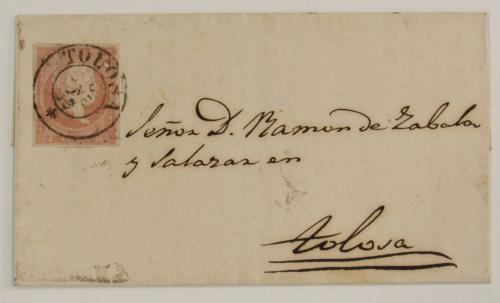 TOLOSA
Señor D. Ramon de Zabala
y Salazar en
tolosa